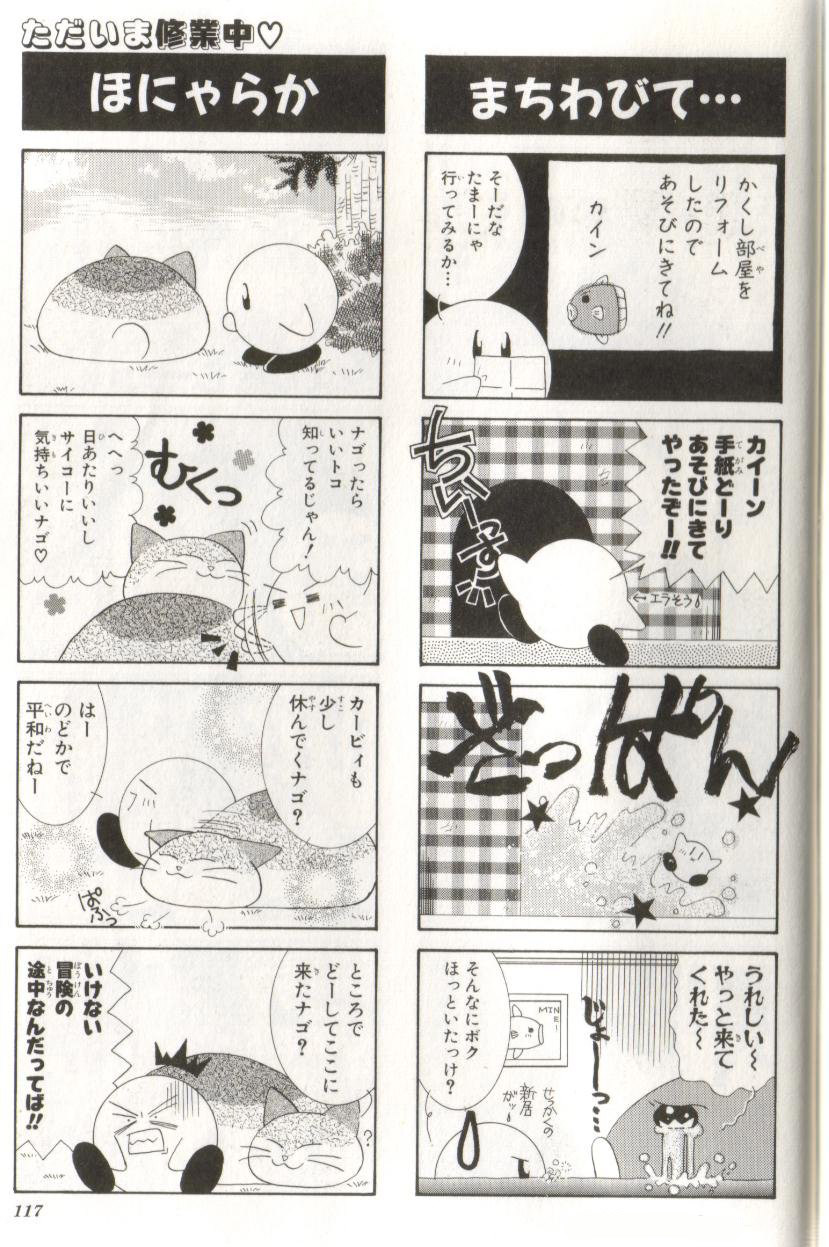 ただいま修業中♡
まちわびて…
かくし部屋を
べや
リフォーム
したので
あそびにきてね!!
カイン
そーだな
たまーにゃ
行ってみるか…
カイーン
手紙どーり
てがみ
あそびにきて
やったぞー!!
ちぃーっす!!
←エラそう
ざっぱゃん
うれしい〜
やっと来て
き
くれた〜
じょーっ…
MINE!
せっかくの
新居
がッ
そんなにボク
ほっといたっけ?
ほにゃらか
ナゴったら
いいトコ
知ってるじゃん!
し
むくっ
へへっ
日あたりいいし
ひ
サイコーに
気持ちいいナゴ♡
きも
カービィも
少し
すこ
休んでくナゴ?
やす
はー
のどかで
平和だねー
へいわ
ぱふっ
ところで
どーしてここに
来たナゴ?
き
?
いけない
冒険の
ぼうけん
途中なんだってば!!
とちゅう
117